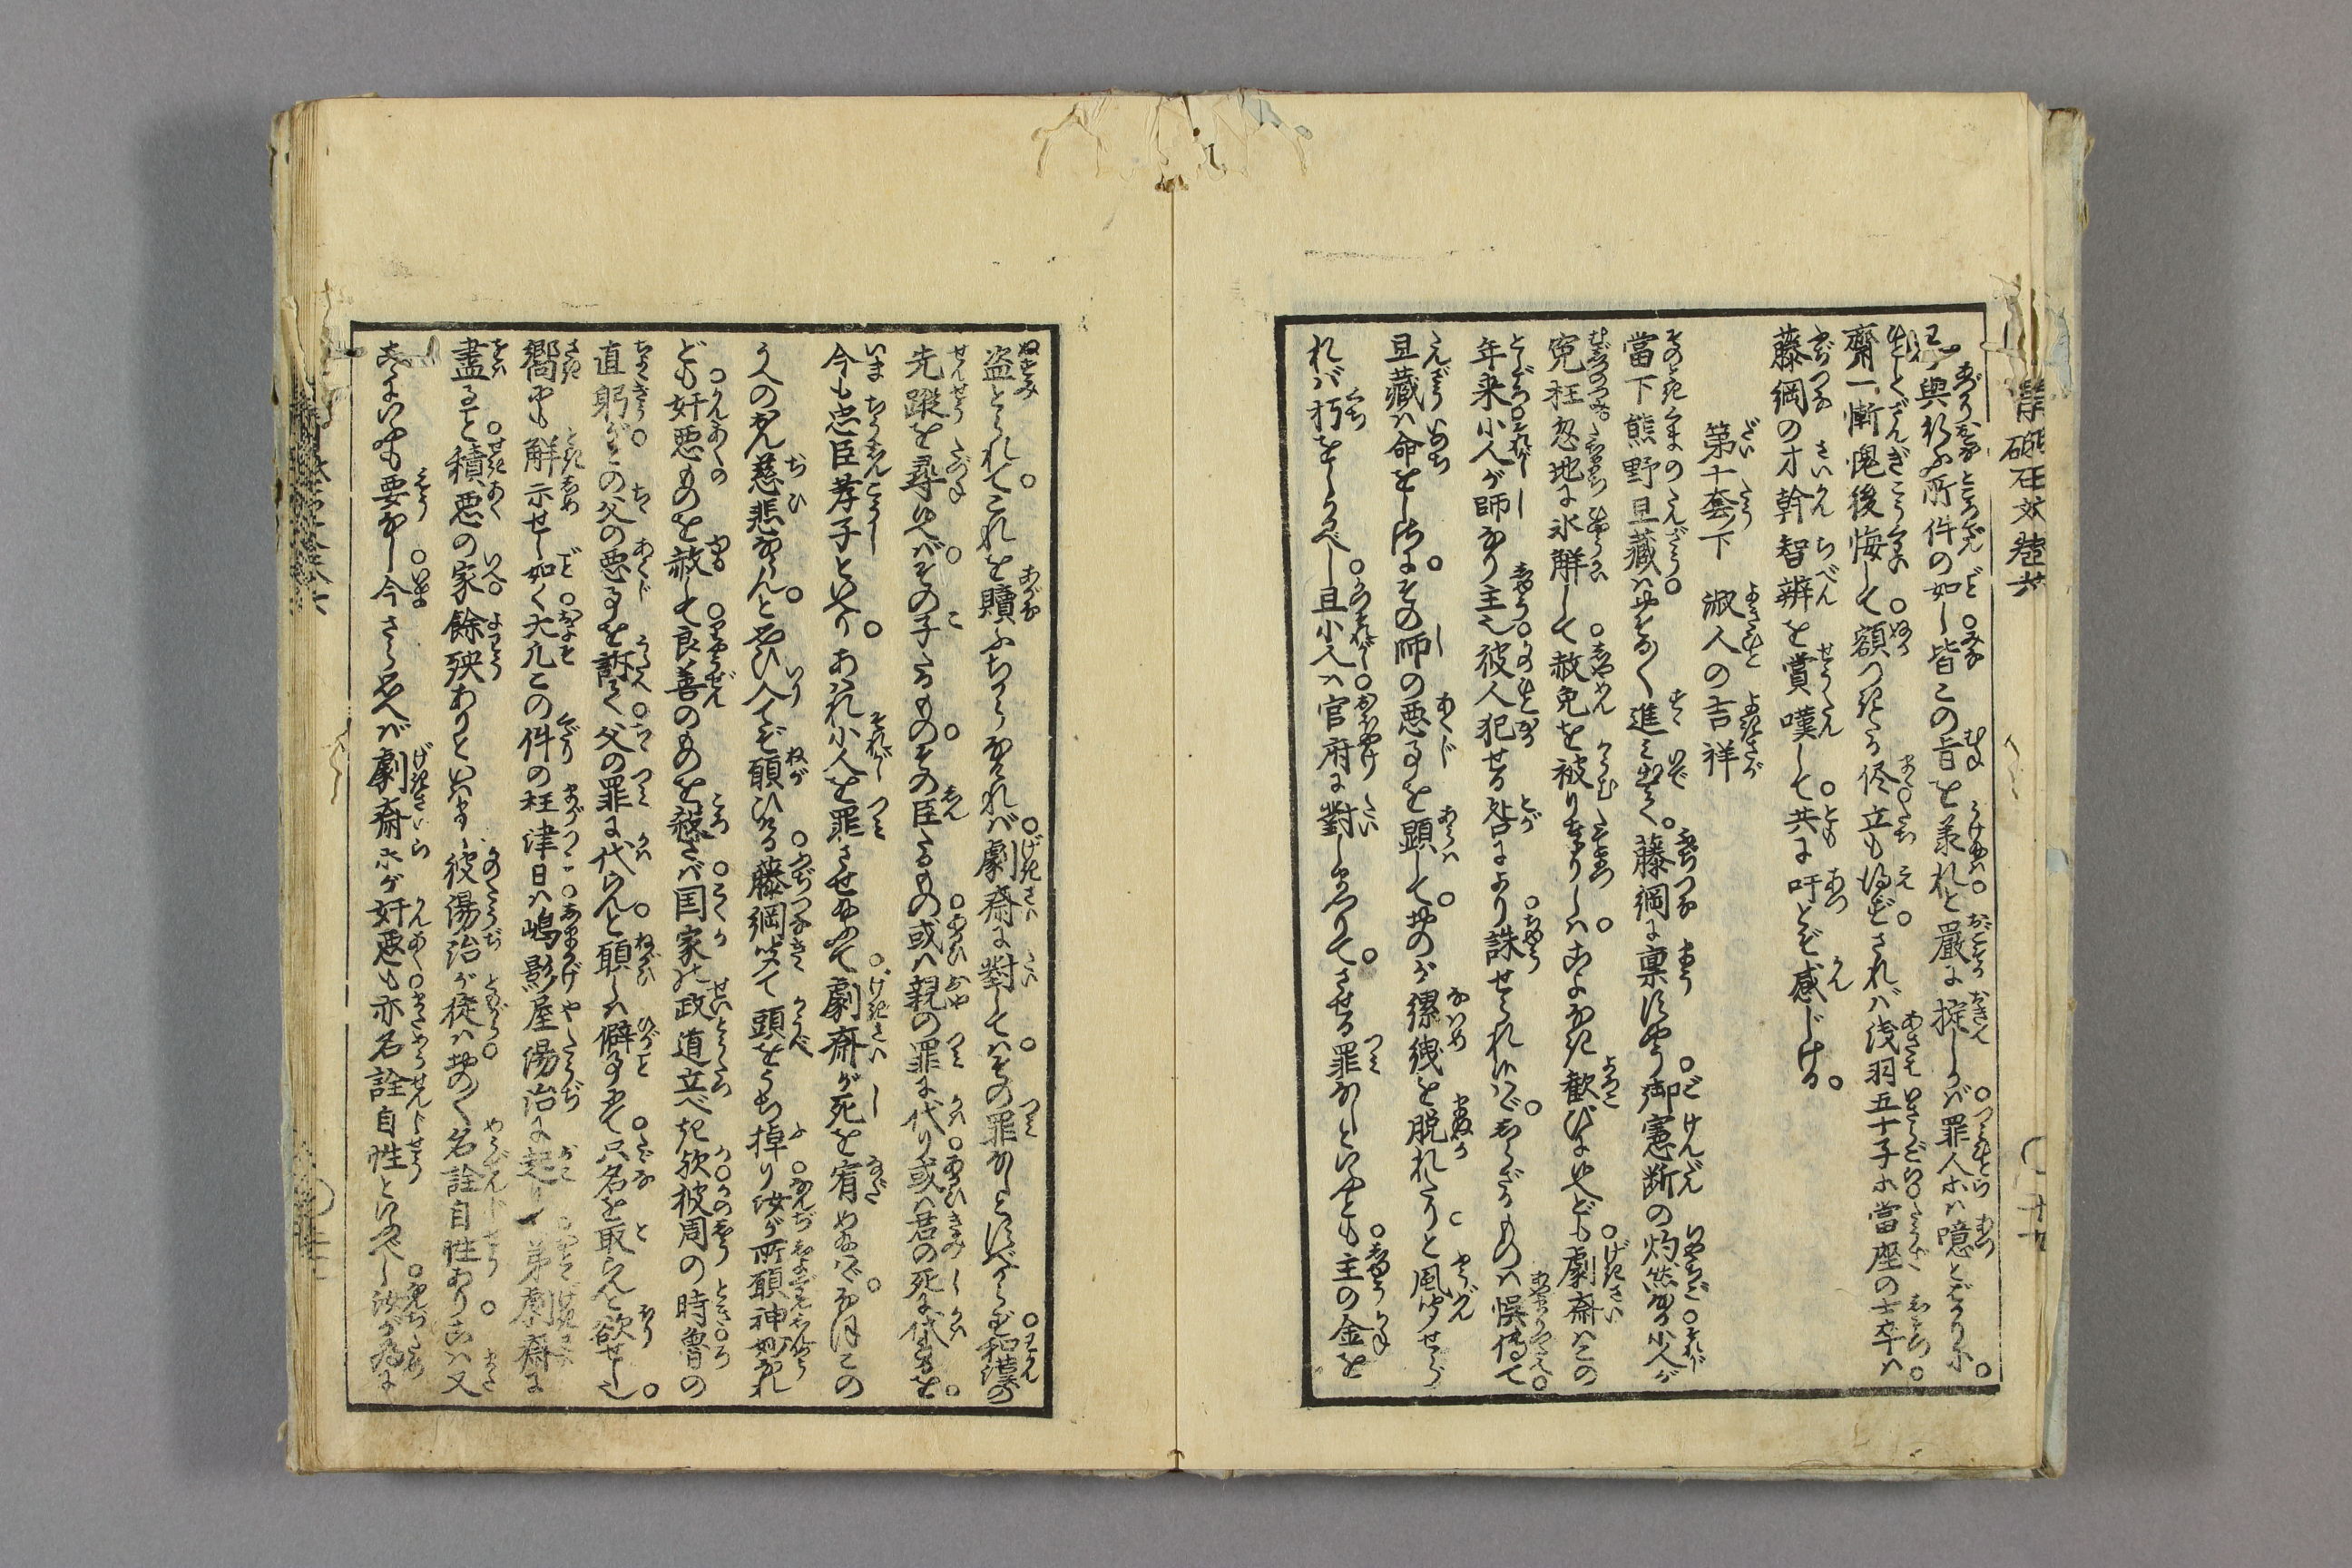 與行ふ所件の如し皆この旨を羕れと嚴に掟しかば罪人ホハ噫とばかりに。
齋一慚愧後悔して額つきたる侭立も得ざされバ浅羽五十子ホ當座の士卒ハ
藤綱の才幹智辨を賞嘆して共に吁とぞ感じける。
第十套下　淑人の吉祥
當下熊野旦藏ハはるく進み出て。藤綱に稟すやう御憲断の灼然なる小人が
寃枉忽地に氷解して赦免を被りまゐりしハ。こよなき歓びに侍れども劇齋ハこの
年来小人が師なり主也彼人犯せる咎により誅せられ侍ハゞ。しらざるものハ悞傳て
旦藏ハ命をしさに。その師の悪事を顕して。おのが縲絏を脱れたりと風聞せら
れバ朽をしかるべし。且小人ハ官府に對しまゐらして。させる罪なしといへども主の金を
盗とられて。これを贖ふちからなけれバ劇齋に對してハ。その罪なしとすべからず。和漢の
先蹤を尋れバ。その子たるもの。その臣たるもの或ハ親の罪に代り或ハ君の死に代るを。
今も忠臣孝子といへり。あハれ小人を罪させ給ふて劇齋が死を宥め給ハゞ。なほこの
うへのおん慈悲ならんと。思ひ入てぞ願ひける藤綱聞て頭をうち掉り汝が所願神妙なれ
ども奸悪ものを赦して良善のものを殺さバ国家の政道立べきか彼周の時魯の
直躬がその父の悪事を訴て父の罪に代らんと願しハ僻事にて只名を取らんと欲せし也。
嚮にも解示せし如く大凢この件の枉津日ハ嶋影屋湯治に起り弟劇齋に
盡ると積悪の家餘殃ありといハまし彼湯治が徒ハおのく名詮自性あり。こハ又
いふも要なし今さら思へバ劇齋ホが奸悪も亦名詮自性といふべし汝が為に